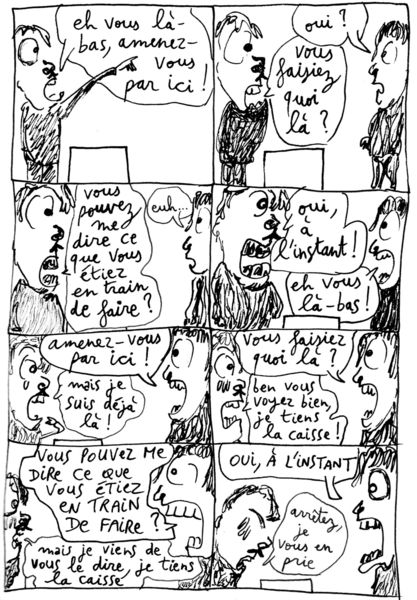 eh vous là-
bas, amenez-
vous
par ici !
oui ?
vous
faisiez
quoi
là ?
vous
pouvez
me
dire ce
que vous
étiez
en train
de faire ?
euh...
oui,
à
l'instant !
eh vous
là-bas !
amenez-vous
par ici !
mais je
suis déjà
là !
vous faisiez
quoi là ?
ben vous
voyez bien,
je tiens
la caisse !
VOUS POUVEZ ME
DIRE CE QUE
VOUS ÉTIEZ
EN TRAIN
DE FAIRE ?
mais je viens de
vous le dire, je tiens
la caisse
OUI, À L'INSTANT
arrêtez,
je
vous en
prie